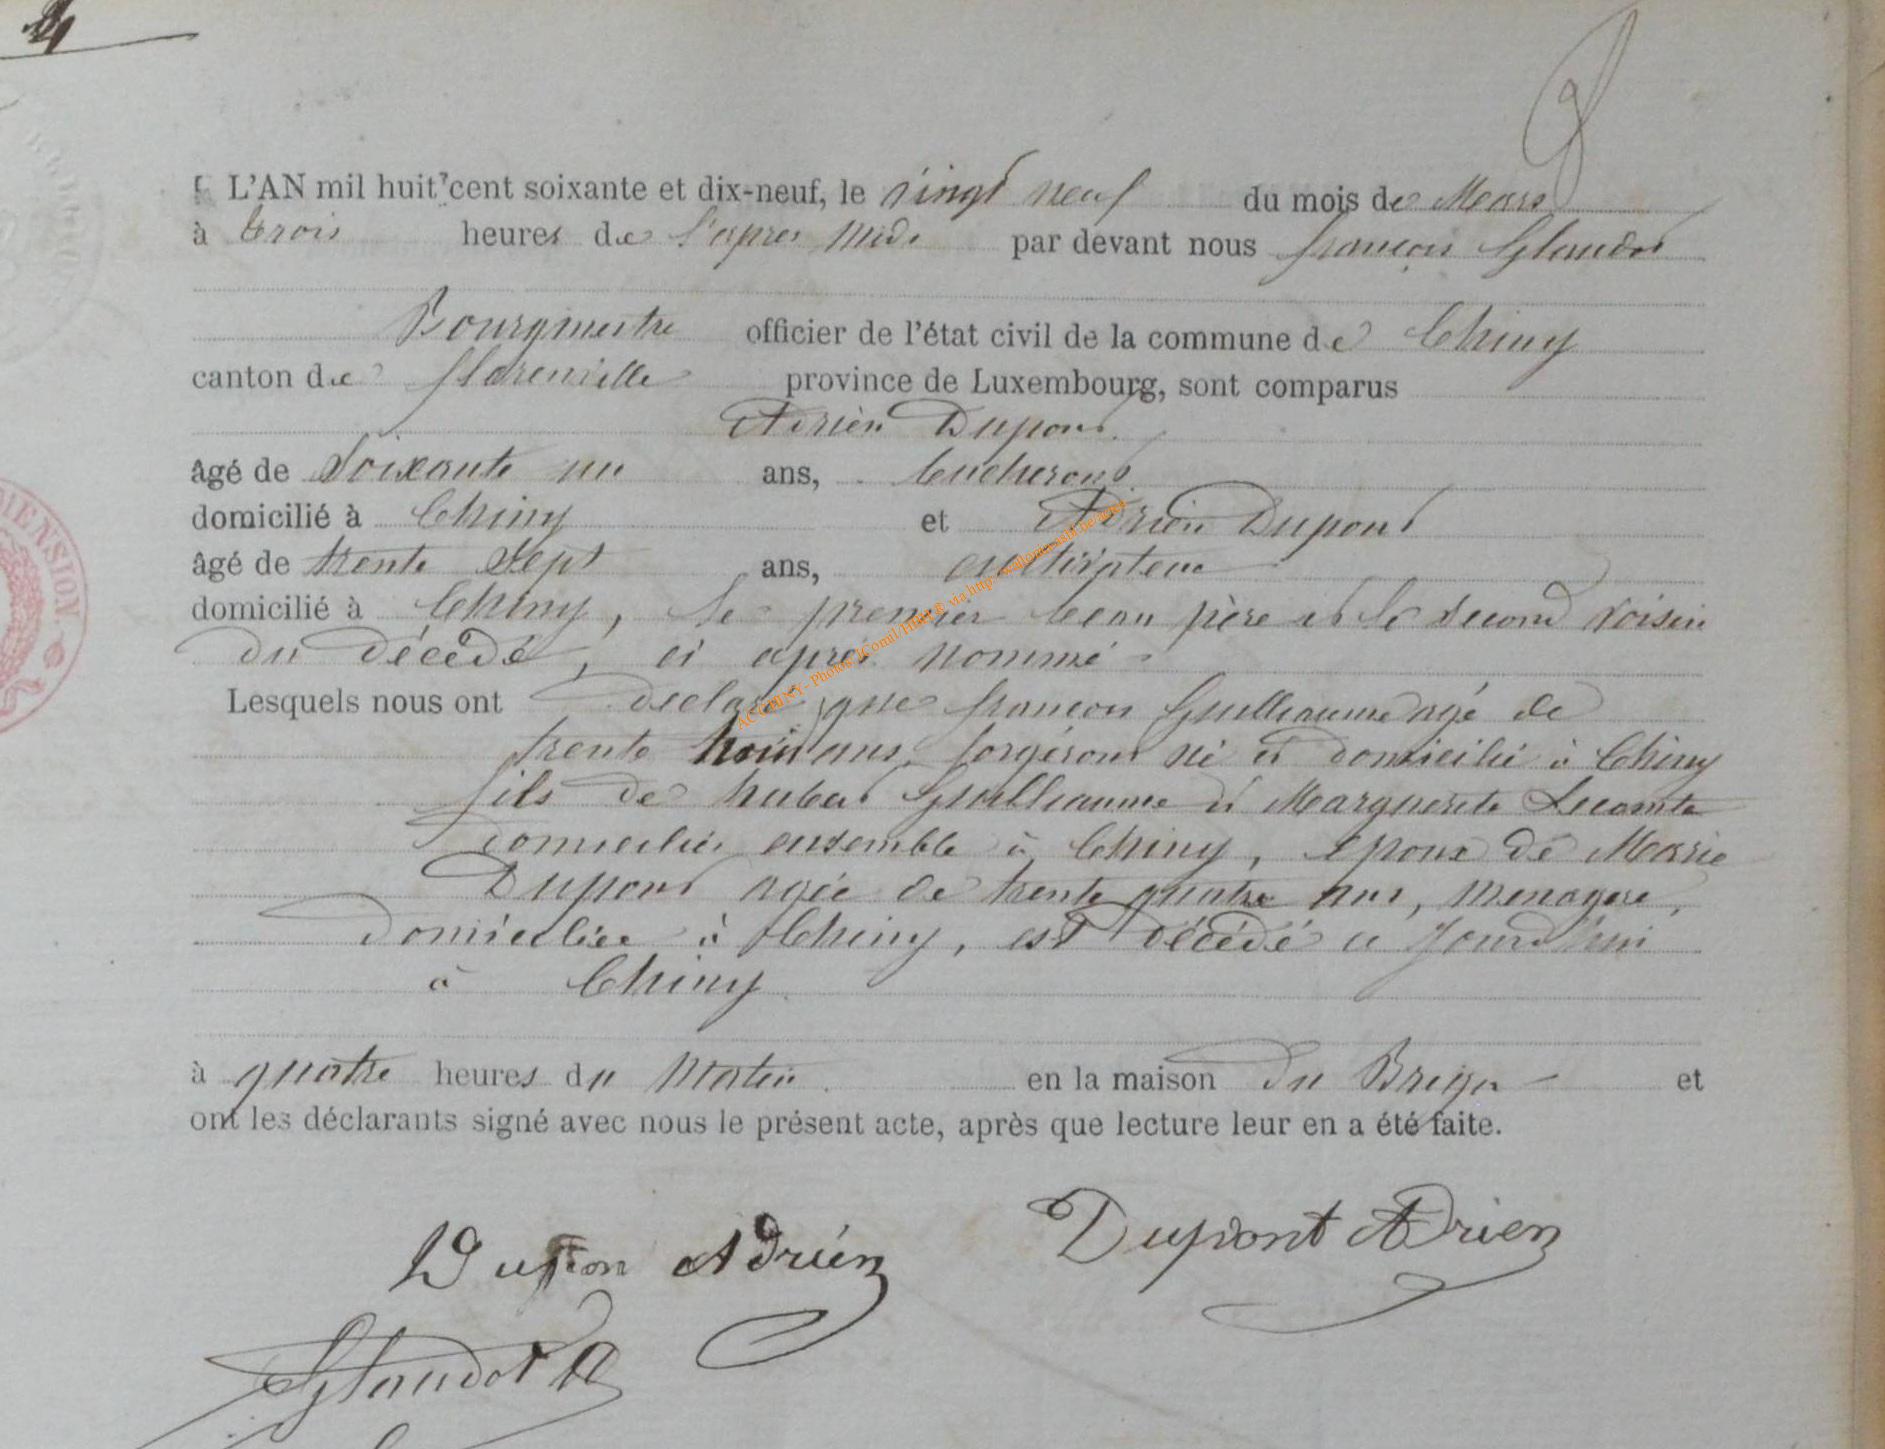 4
L'AN mil huit cent soixante et dix-neuf, le vingt neuf du mois de Mars
à trois heures de l'apres midi par devant nous françois Glaudot
Bourgmestre officier de l'état civil de la commune de Chiny
canton de florenville province de Luxembourg, sont comparus
Adrien Dupont
âgé de Soixante un ans, bucheron
domicilié à Chiny et Adrien Dupont
âgé de trente Sept ans, cultivateur
domicilié à Chiny, le premier beau père et le second voisin
du décédé, ci après nommé
Lesquels nous ont declaré que françois Guilleaume agé de
trente ans, forgeron né et domicilié à Chiny
fils de hubert Guilleaume et Marguerite Lecomte
domiciliés ensemble à Chiny, epoux de Marie
Dupont agée de trente quatre ans, menagere,
domiciliée à Chiny, est décédé ce jourd'hui
à Chiny
à quatre heures du Matin en la maison du et
ont les déclarants signé avec nous le présent acte, après que lecture leur en a été faite.
Dupon Adrién Dupont Adrien
Glaudot
MENSION.
ACCHINY- Photos JComil/HdH © via http://